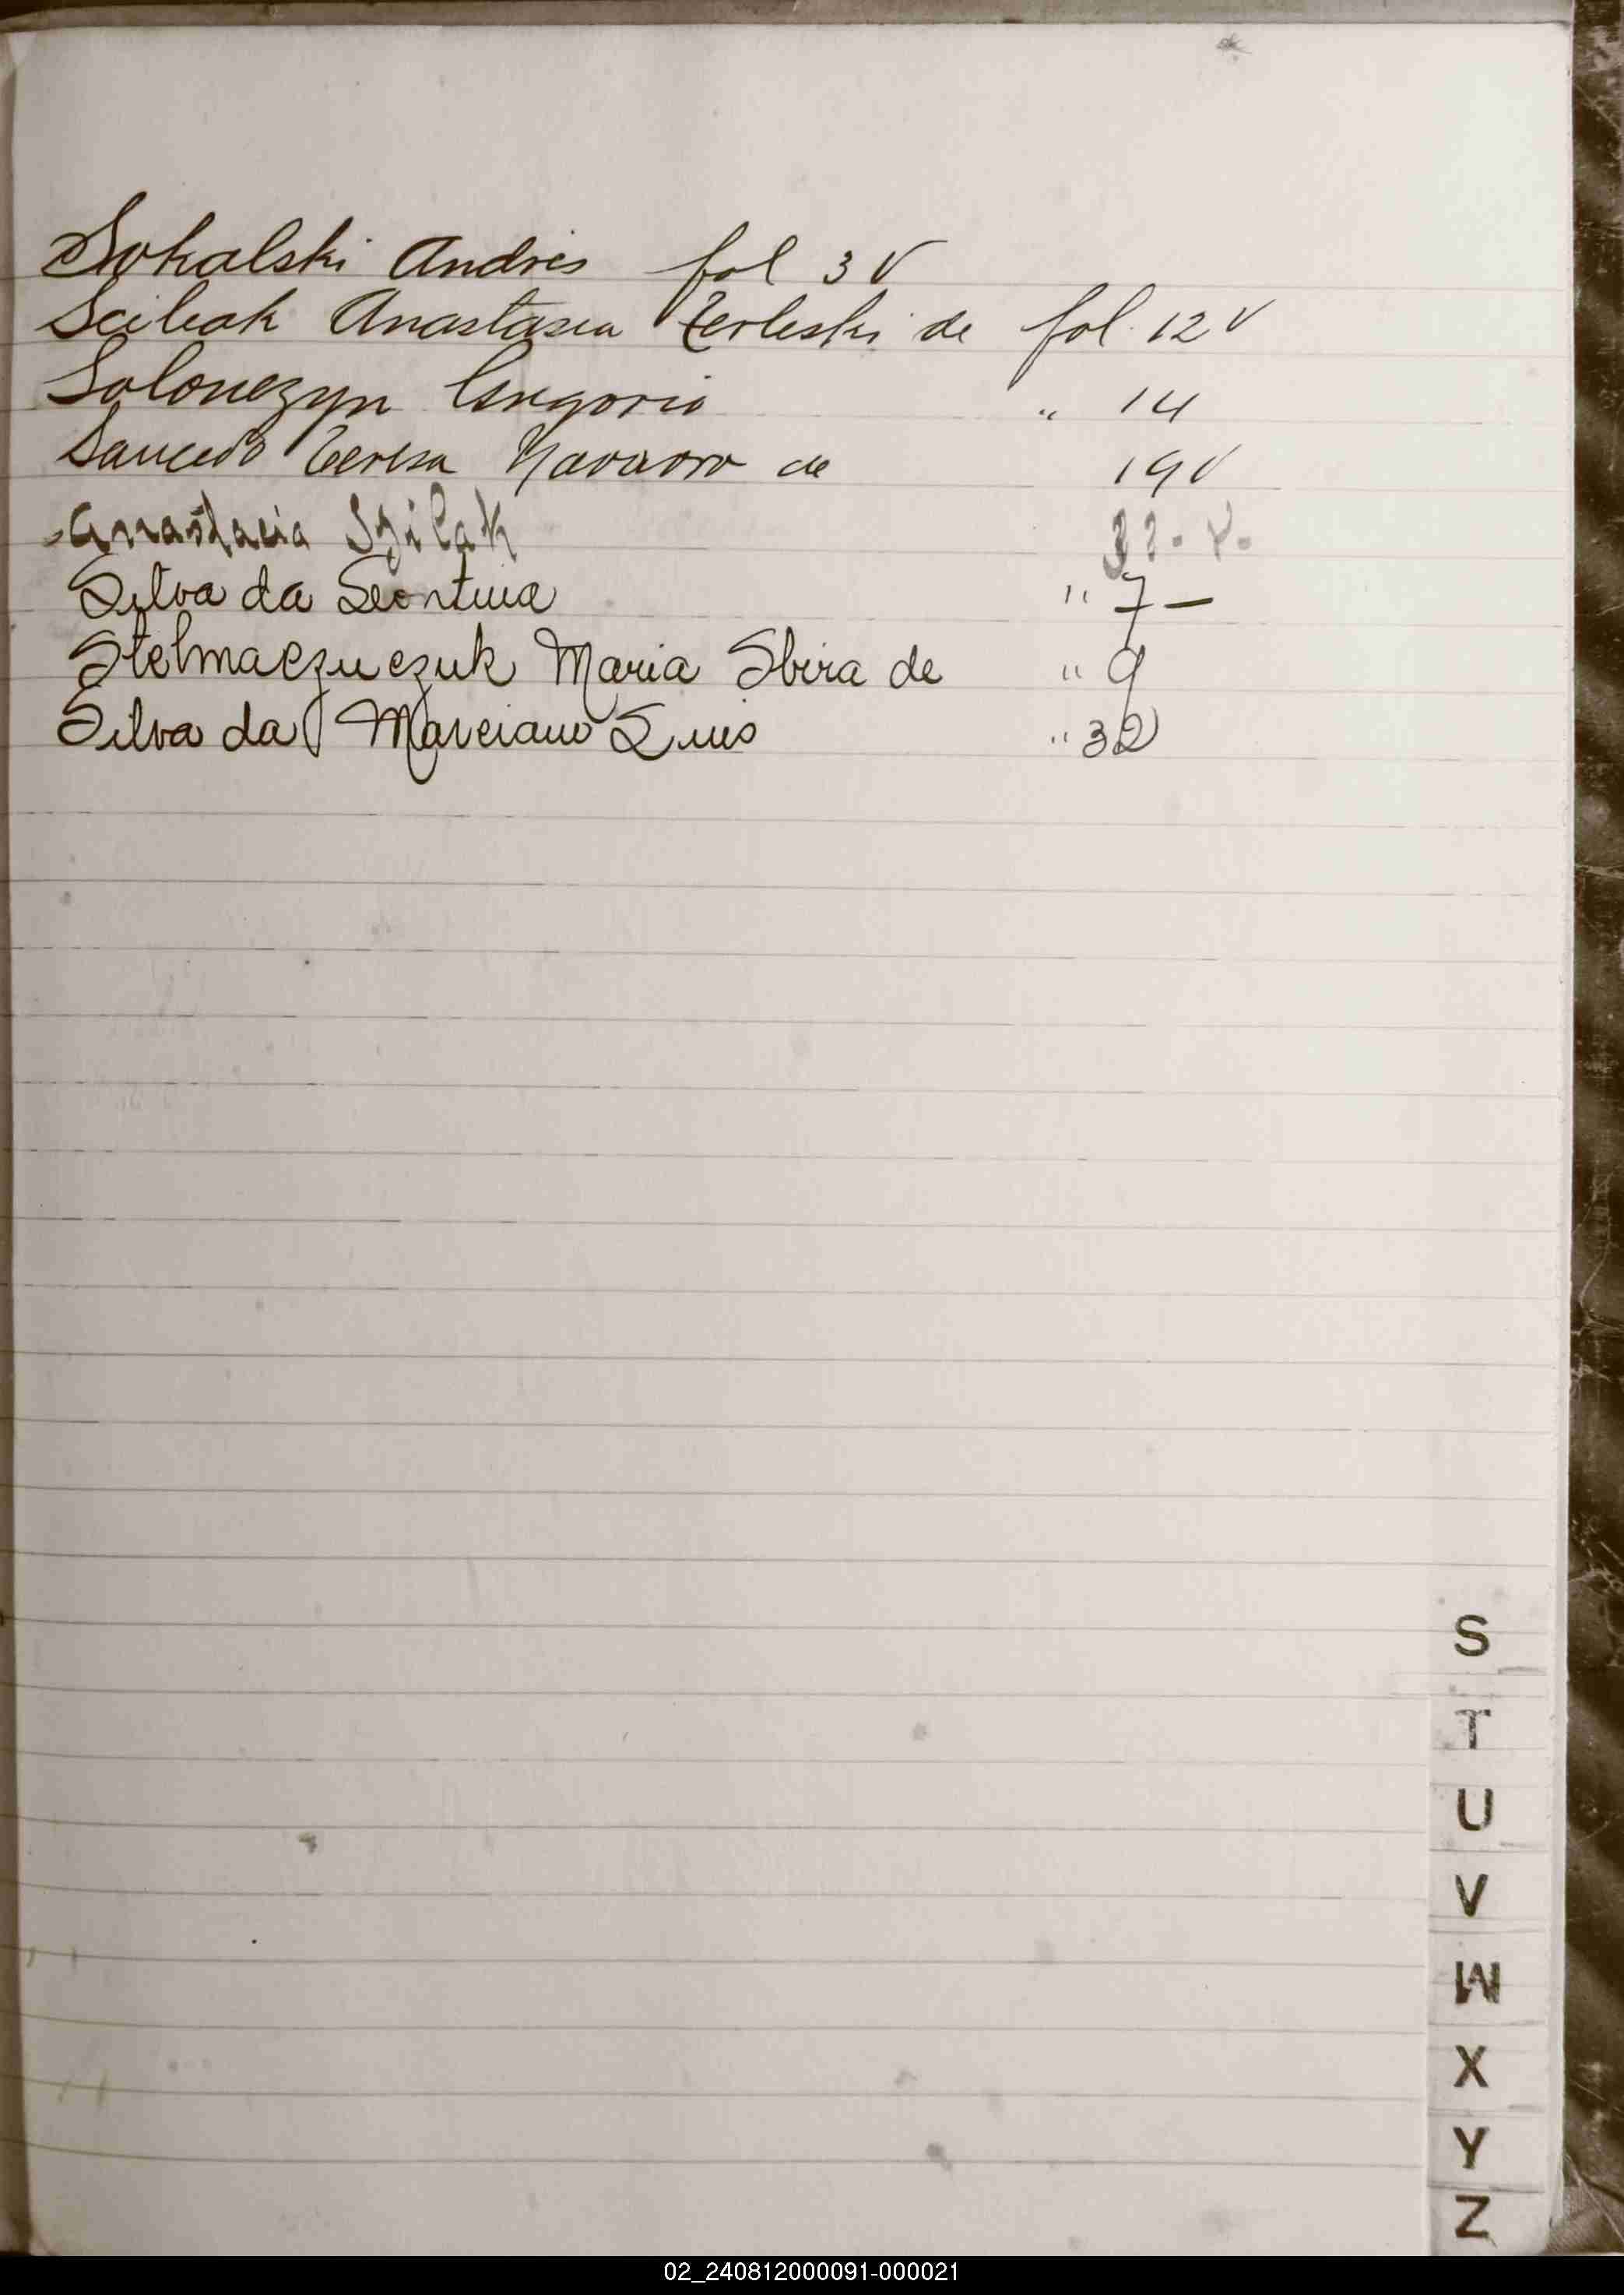 Sokalski Andrés fol 3 V
Scibak Anastasia Terleski de fol. 12 V
Solonezyn Gregorio " 14
Saucedo Teresa Navarro de 19 V
Anastacia Szilak
Silva da Leontina " 7 —
Stelmaezuezuk Maria Sbira de " 9
Silva da Marciano Luis " 32
S
T
U
V
W
X
Y
Z
02_240812000091-000021